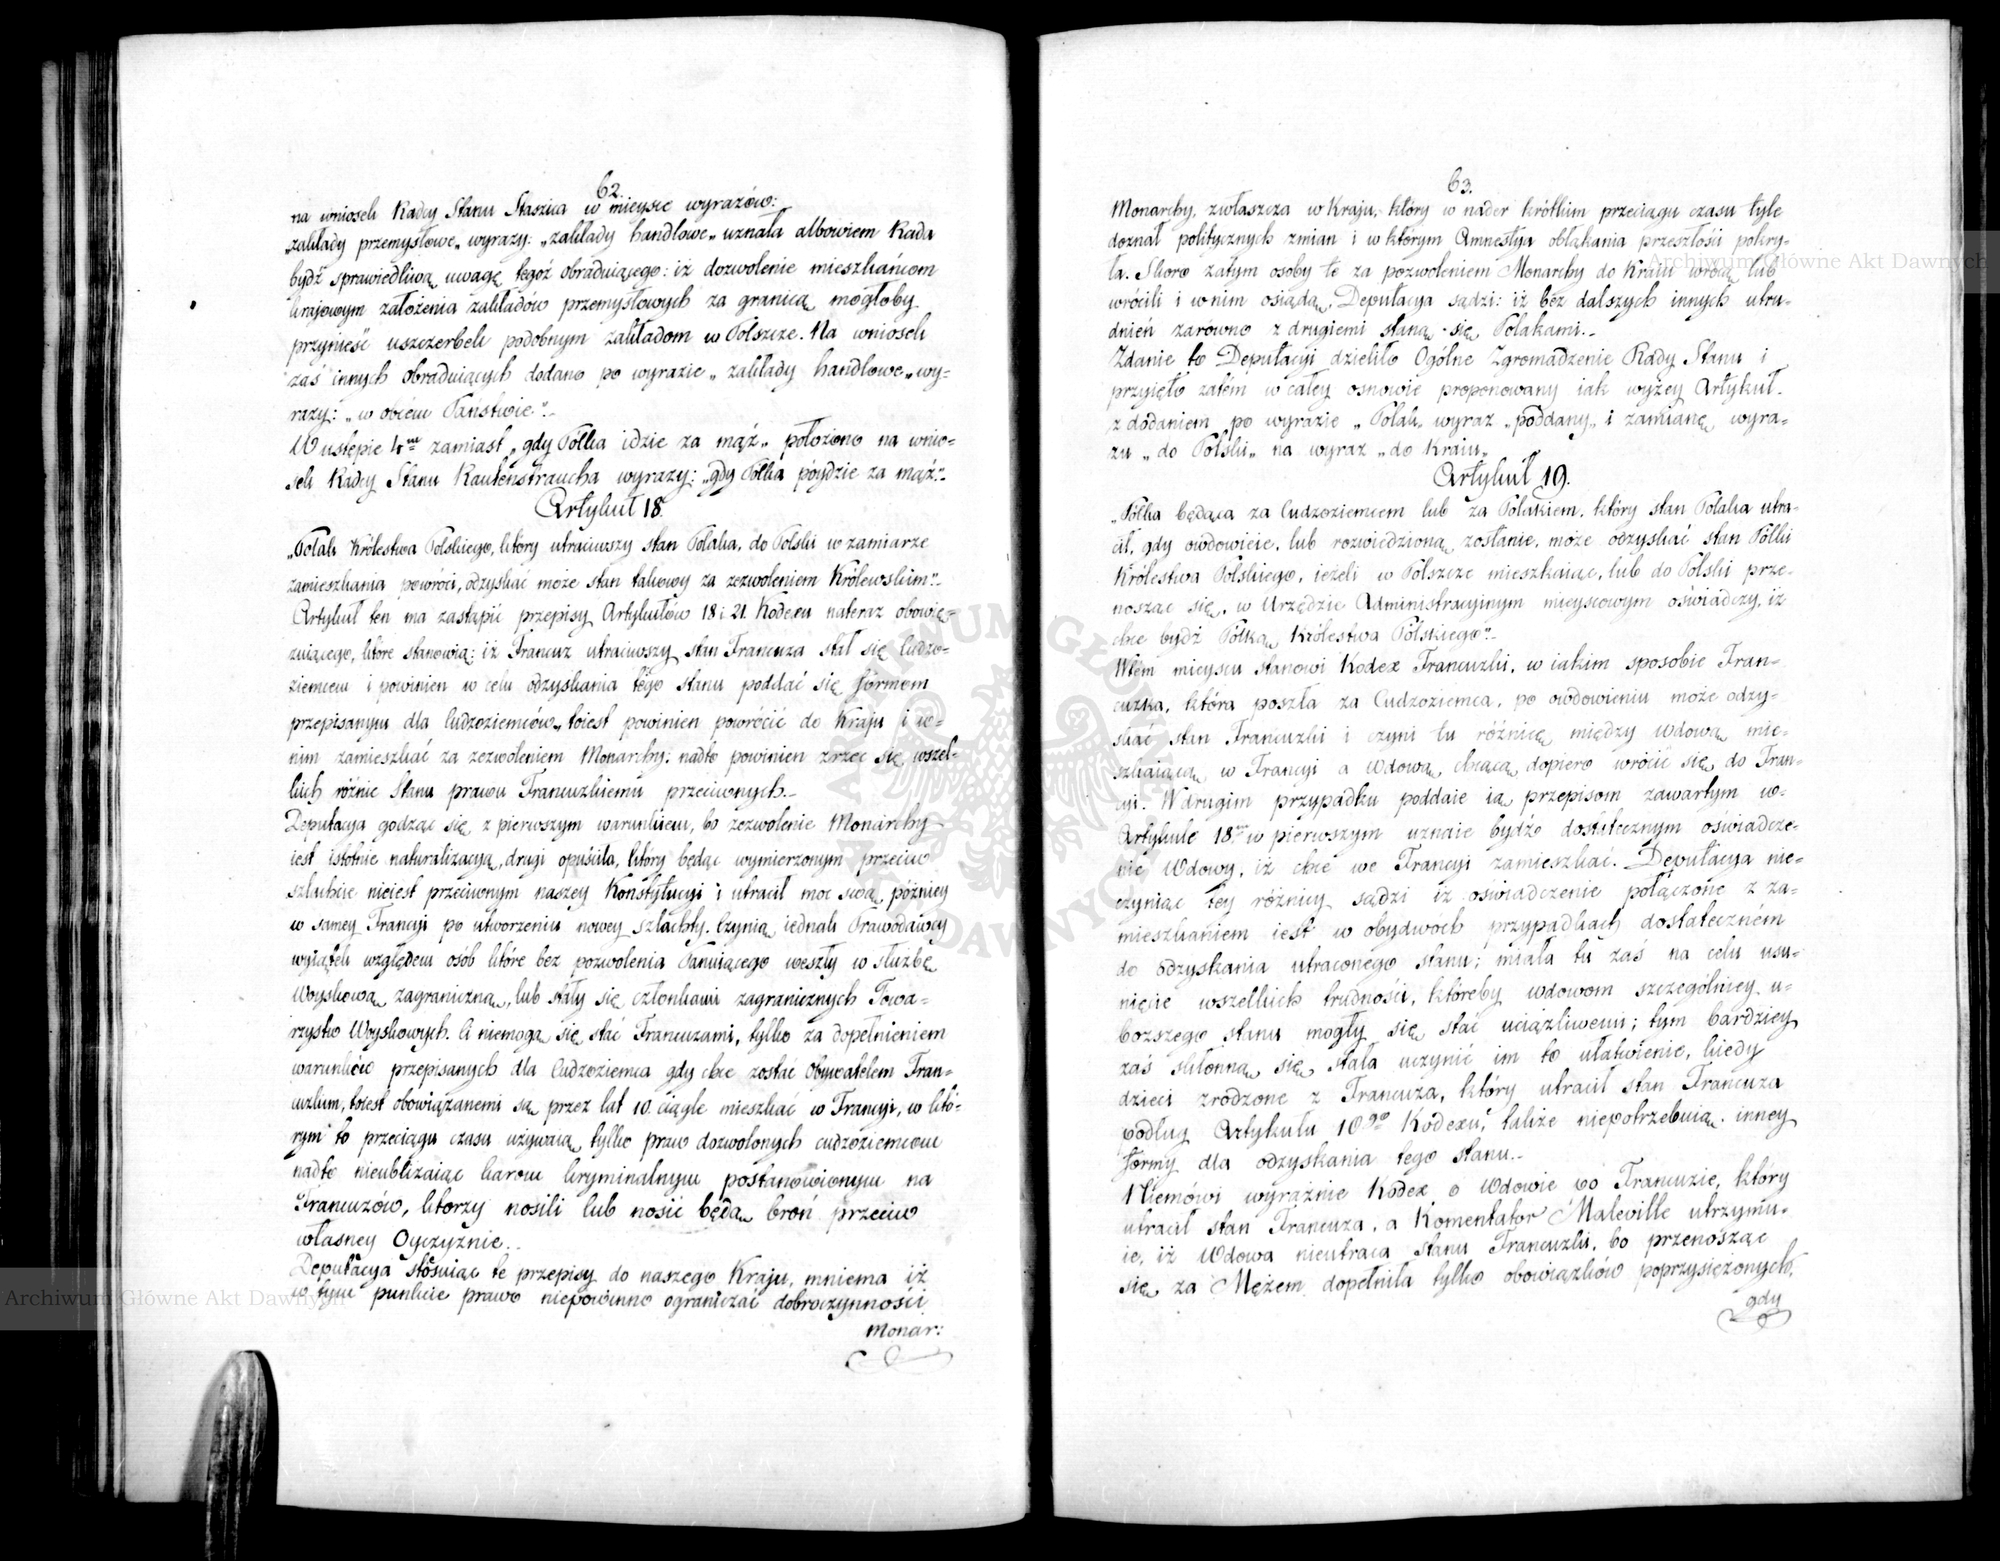 62.
na wniosek Radcy Stanu Staszica w mieysce wyrazów:
„zakłady przemysłowe„ wyrazy: „zakłady handlowe„ uznała albowiem Rada
bydź sprawiedliwą uwagę tegoż obraduiącego: iż dozwolenie mieszkańcom
kraiowym założenia zakładów przemysłowych za granicą mogłoby
przynieść uszczerbek podobnym zakładom w Polszcze. Na wniosek
zaś innych obraduiących dodano po wyrazie „zakłady handlowe„ wy-
razy: „w obcém Państwie".-
W ustępie 4m zamiast „gdy Polka idzie za mąż„ położono na wnio-
sek Radcy Stanu Rautenstraucha wyrazy: „gdy Polka póydzie za mąż".-
Artykuł 18.
„Polak Królestwa Polskiego, który utraciwszy stan Polaka, do Polski w zamiarze
zamieszkania powróci, odzyskać może stan takowy za zezwoleniem Królewskim".-
Artykuł ten ma zastąpić przepisy Artykułów 18 i 21. Kodexu nateraz obowią-
zuiącego, które stanowią: iż Francuz utraciwszy stan Francuza stał się Cudzo-
ziemcem i powinien w celu odzyskania tego stanu poddać się formom
przepisanym dla Cudzoziemców, toiest powinien powrócić do Kraju i w-
nim zamieszkać za zezwoleniem Monarchy: nadto powinien zrzec się wszel-
kich różnic Stanu prawu Francuzkiemu przeciwnych.-
Deputacya godząc się z pierwszym warunkiem, bo zezwolenie Monarchy
iest istotnie naturalizacyą, drugi opuściła, który będąc wymierzonym przeciw
szlachcie nieiest przeciwnym naszey Konstytucyi i utracił moc swą późniey
w samey Francyi po utworzeniu nowey szlachty. Czynią iednak Prawodawcy
wyiątek względem osób które bez pozwolenia Panuiącego weszły w służbę
Woyskową zagraniczną, lub stały się członkami zagranicznych Towa-
rzystw Woyskowych. Ci niemogą się stać Francuzami, tylko za dopełnieniem
warunków przepisanych dla Cudzoziemca gdy chce zostać Obywatelem Fran-
cuzkim, toiest obowiązanemi są przez lat 10. ciągle mieszkać w Francyi, w któ-
rym to przeciągu czasu używaią tylko praw dozwolonych cudzoziemcom
nadto nieubliżaiąc karom kryminalnym postanowionym na
Francuzów, którzy nosili lub nosić będą broń przeciw
własney Oyczyźnie.-
Deputacya stosuiąc te przepisy do naszego Kraju, mniema iż
w tym punkcie prawo niepowinno ograniczać dobroczynności
Monar:
63.
Monarchy, zwłaszcza w Kraju, który w nader krótkim przeciągu czasu tyle
doznał politycznych zmian i w którym Amnestya obłąkania przeszłości pokry-
ła. Skoro zatym osoby te za pozwoleniem Monarchy do Kraiu wrócą lub
wrócili i w nim osiądą, Deputacya sądzi: iż bez dalszych innych utru-
dnień zarówno z drugiemi staną się Polakami.-
Zdanie to Deputacyi dzieliło Ogólne Zgromadzenie Rady Stanu i
przyięło zatém w całey osnowie proponowany iak wyżey Artykuł.
z dodaniem po wyrazie „Polak„ wyraz „poddany„ i zamianą wyra-
zu „do Polski„ na wyraz „do Kraiu„
Artykuł 19.
„Polka będąca za Cudzoziemcem lub za Polakiem, który stan Polaka utra-
cił, gdy owdowieie, lub rozwiedzioną zostanie, może odzyskać stan Polki
Królestwa Polskiego, ieżeli w Polszcze mieszkaiąc, lub do Polski prze-
nosząc się, w Urzędzie Administracyinym mieyscowym oświadczy, iż
chce bydź Polką Królestwa Polskiego".-
W tém mieyscu stanowi Kodex Francuzki, w iakim sposobie Fran-
cuzka, która poszła za Cudzoziemca, po owdowieniu może odzy-
skać stan Francuzki i czyni tu różnicę między wdową mie-
szkaiącą w Francyi a wdową chcącą dopiero wrócić się do Fran-
cyi. W drugim przypadku poddaie ią przepisom zawartym w-
Artykule 18m w pierwszym uznaie bydź dostatecznym oświadcze-
nie Wdowy, iż chce we Francyi zamieszkać. Deputacya nie-
czyniąc tey różnicy sądzi iż oświadczenie połączone z za-
mieszkaniem iest w obydwóch przypadkach dostateczném
do odzyskania utraconego stanu; miała tu zaś na celu usu-
nięcie wszelkich trudności, któreby wdowom szczególniey u-
boższego stanu mogły się stać uciążliwemi; tym bardziey
zaś skłonną się stała uczynić im to ułatwienie, kiedy
dzieci zrodzone z Francuza, który utracił stan Francuza
podług Artykułu 10go Kodexu, także niepotrzebuią inney
formy dla odzyskania tego stanu.-
Niemówi wyraźnie Kodex o Wdowie po Francuzie, który
utracił stan Francuza, a Komentator Maleville utrzymu-
ie, iż Wdowa nieutraca stanu Francuzki, bo przenosząc
się za Mężem dopełniła tylko obowiązków poprzysiężonych,
gdy
Archiwum Główne Akt Dawnych
Archiwum Główne Akt Dawnych
ARCHIWUM GŁÓWNE AKT DAWNYCH